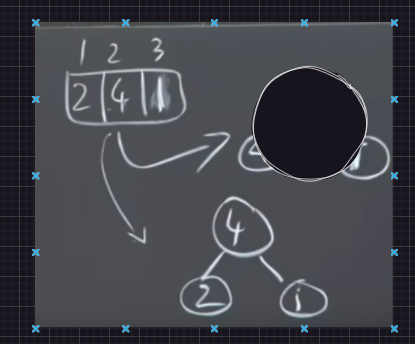 1 2 3
2 4 1
4
2 1